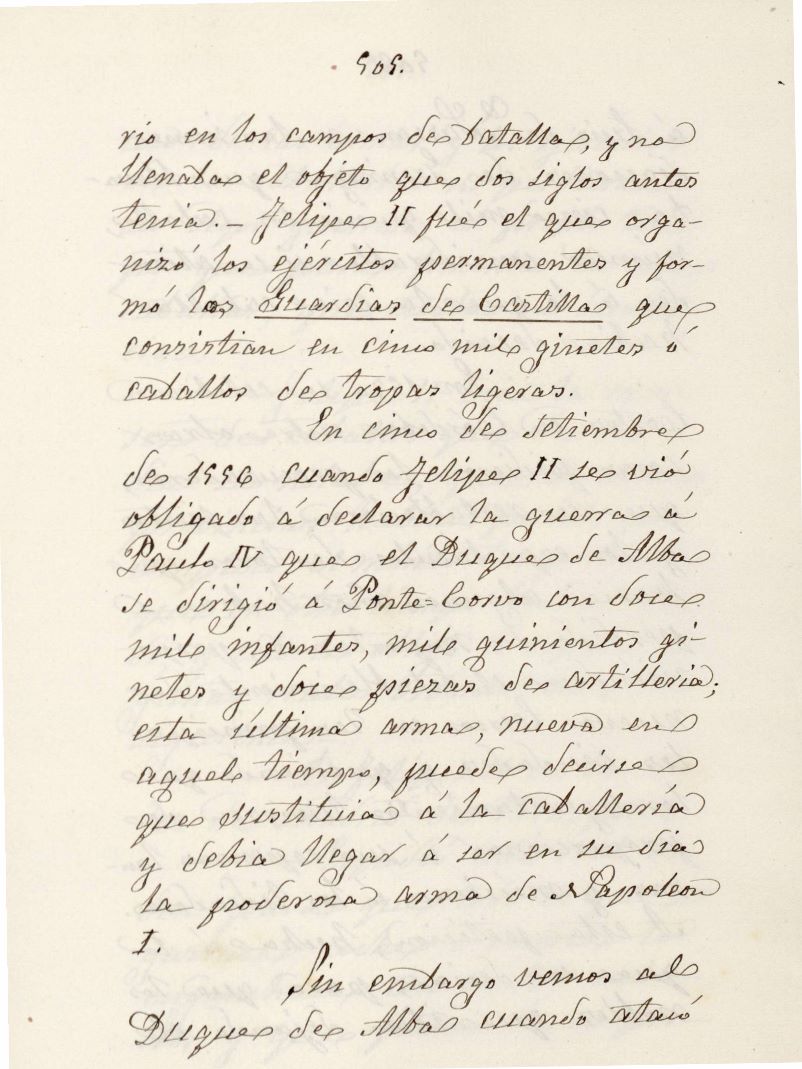 505.
rio en los campos de batalla, y no
llenaba el objeto que dos siglos antes
tenia.- Felipe II fué el que orga-
nizó los ejércitos permanentes y for-
mó las Guardias de Castilla que
consistian en cinco mil ginetes ó
caballos de tropas ligeras.
En cinco de setiembre
de 1556 cuando Felipe II se vió
obligado á declarar la guerra á
Paulo IV que el Duque de Alba
se dirigió á Ponte=Corvo con doce
mil infantes, mil quinientos gi-
netes y doce piezas de artilleria;
esta última arma, nueva en
aquel tiempo, puede decirse
que sustituia á la caballería
y debia llegar á ser en su dia
la poderosa arma de Napoleon
I.
Sin embargo vemos al
Duque de Alba cuando atacó